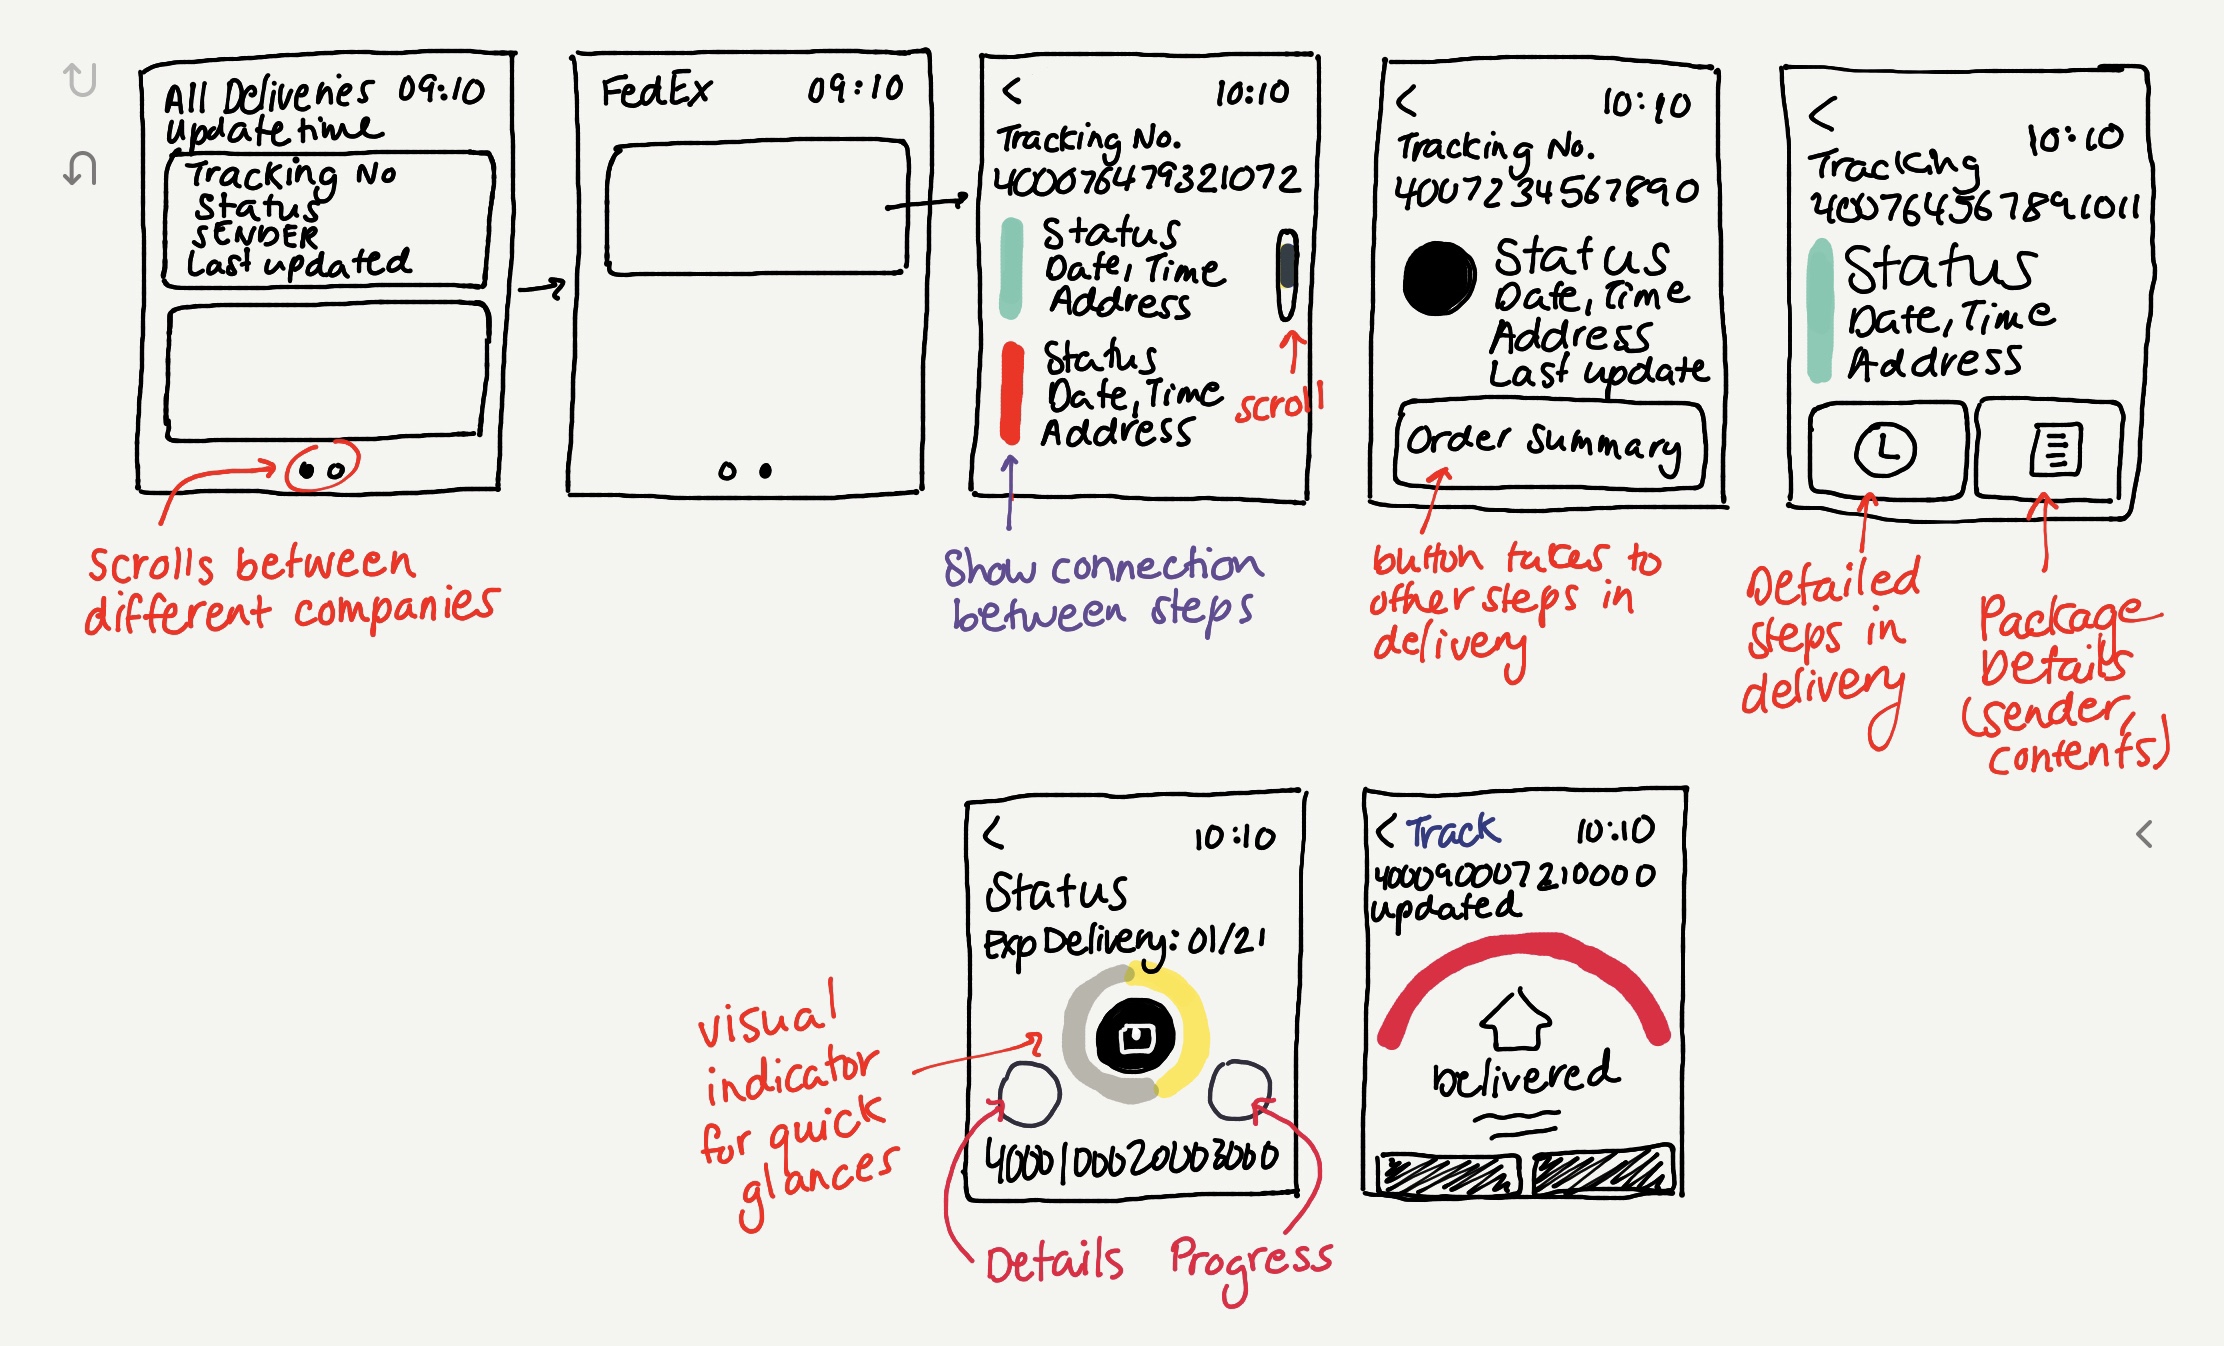 All Deliveries 09:10
Update time
Tracking No
Status
SENDER
Last updated
Scrolls between
different companies
FedEx 09:10
< 10:10
Tracking No.
400076479321072
Status
Date, Time
Address
Status
Date, Time
Address
scroll
Show connection
between steps
< 10:10
Tracking No.
4007234567890
Status
Date, Time
Address
Last update
Order Summary
button takes to
other steps in
delivery
< 10:10
Tracking
400764567891011
Status
Date, Time
Address
Detailed
steps in
delivery
Package
Details
(sender,
contents)
< 10:10
Status
Exp Delivery: 01/21
4000100020003000
visual
indicator
for quick
glances
Details
Progress
< Track 10:10
400090007210000
updated
Delivered